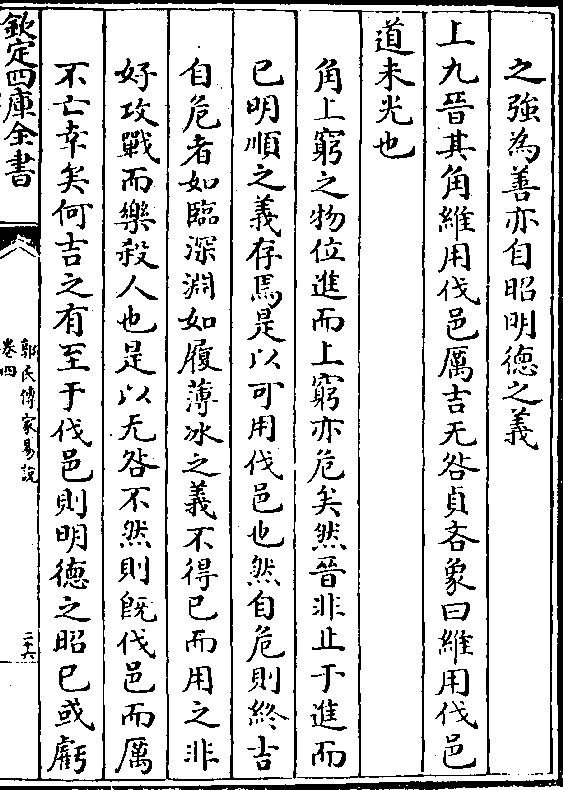 之強為善亦自昭明德之義
上九晉其角維用伐邑厲吉无咎貞吝象曰維用伐邑
道未光也
角上窮之物位進而上窮亦危矣然晉非止于進而
已明順之義存焉是以可用伐邑也然自危則終吉
自危者如臨深淵如履薄冰之義不得已而用之非
好攻戰而樂殺人也是以无咎不然則既伐邑而厲
不亡幸矣何吉之有至于伐邑則明德之昭已或虧
欽定四庫全書
郭氏傳家易說
卷四
二十六